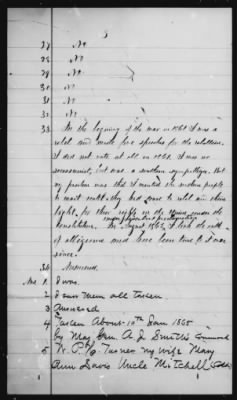 3
27 No
28 No
29 No
30 No
31 No
32 No
33 In the beginning of the war in 1861 I was a
rebel and made five speeches for the rebellion.
I did not vote at all in 1861. I was no
secessionist, but was a southern sympathizer. But
my position was that I wanted the southern people
to wait until they had some to rebel and then
fight, for their rights in the Union under the
Constitution. In August 1863 I took the oath
of allegiance and have been true to it ever
since.
34 Answered.
Ans. 1 I was.
2 I saw them all taken
3 Answered
4 Taken About 10th Jan 1865
by Maj. Gen. A. J. Smith's Command
5 W. P. Turner my wife Mary
Ann Davis Uncle Mitchell